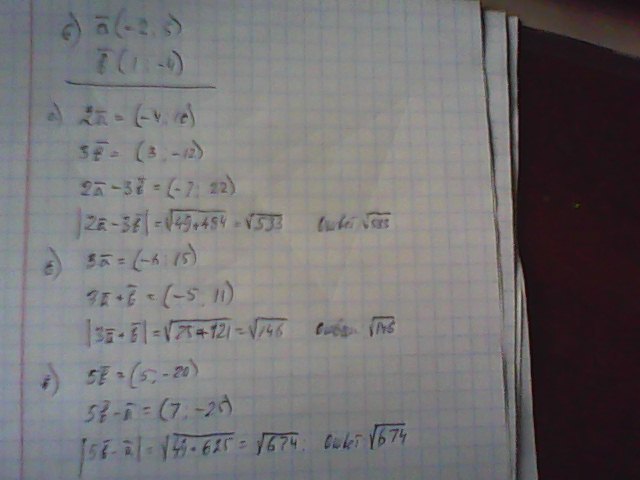 б) a̅ (-2; 5)
b̅ (1; -4)
а) 2a̅ = (-4; 10)
3b̅ = (3; -12)
2a̅ - 3b̅ = (-7; 22)
|2a̅ - 3b̅| = √49+484 = √533 Ответ √533
3a̅ = (-6; 15)
3a̅ + b̅ = (-5; 11)
|3a̅ + b̅| = √25+121 = √146 Ответ √146
5b̅ = (5; -20)
5b̅ - a̅ = (7; -25)
|5b̅ - a̅| = √49+625 = √674. Ответ √674